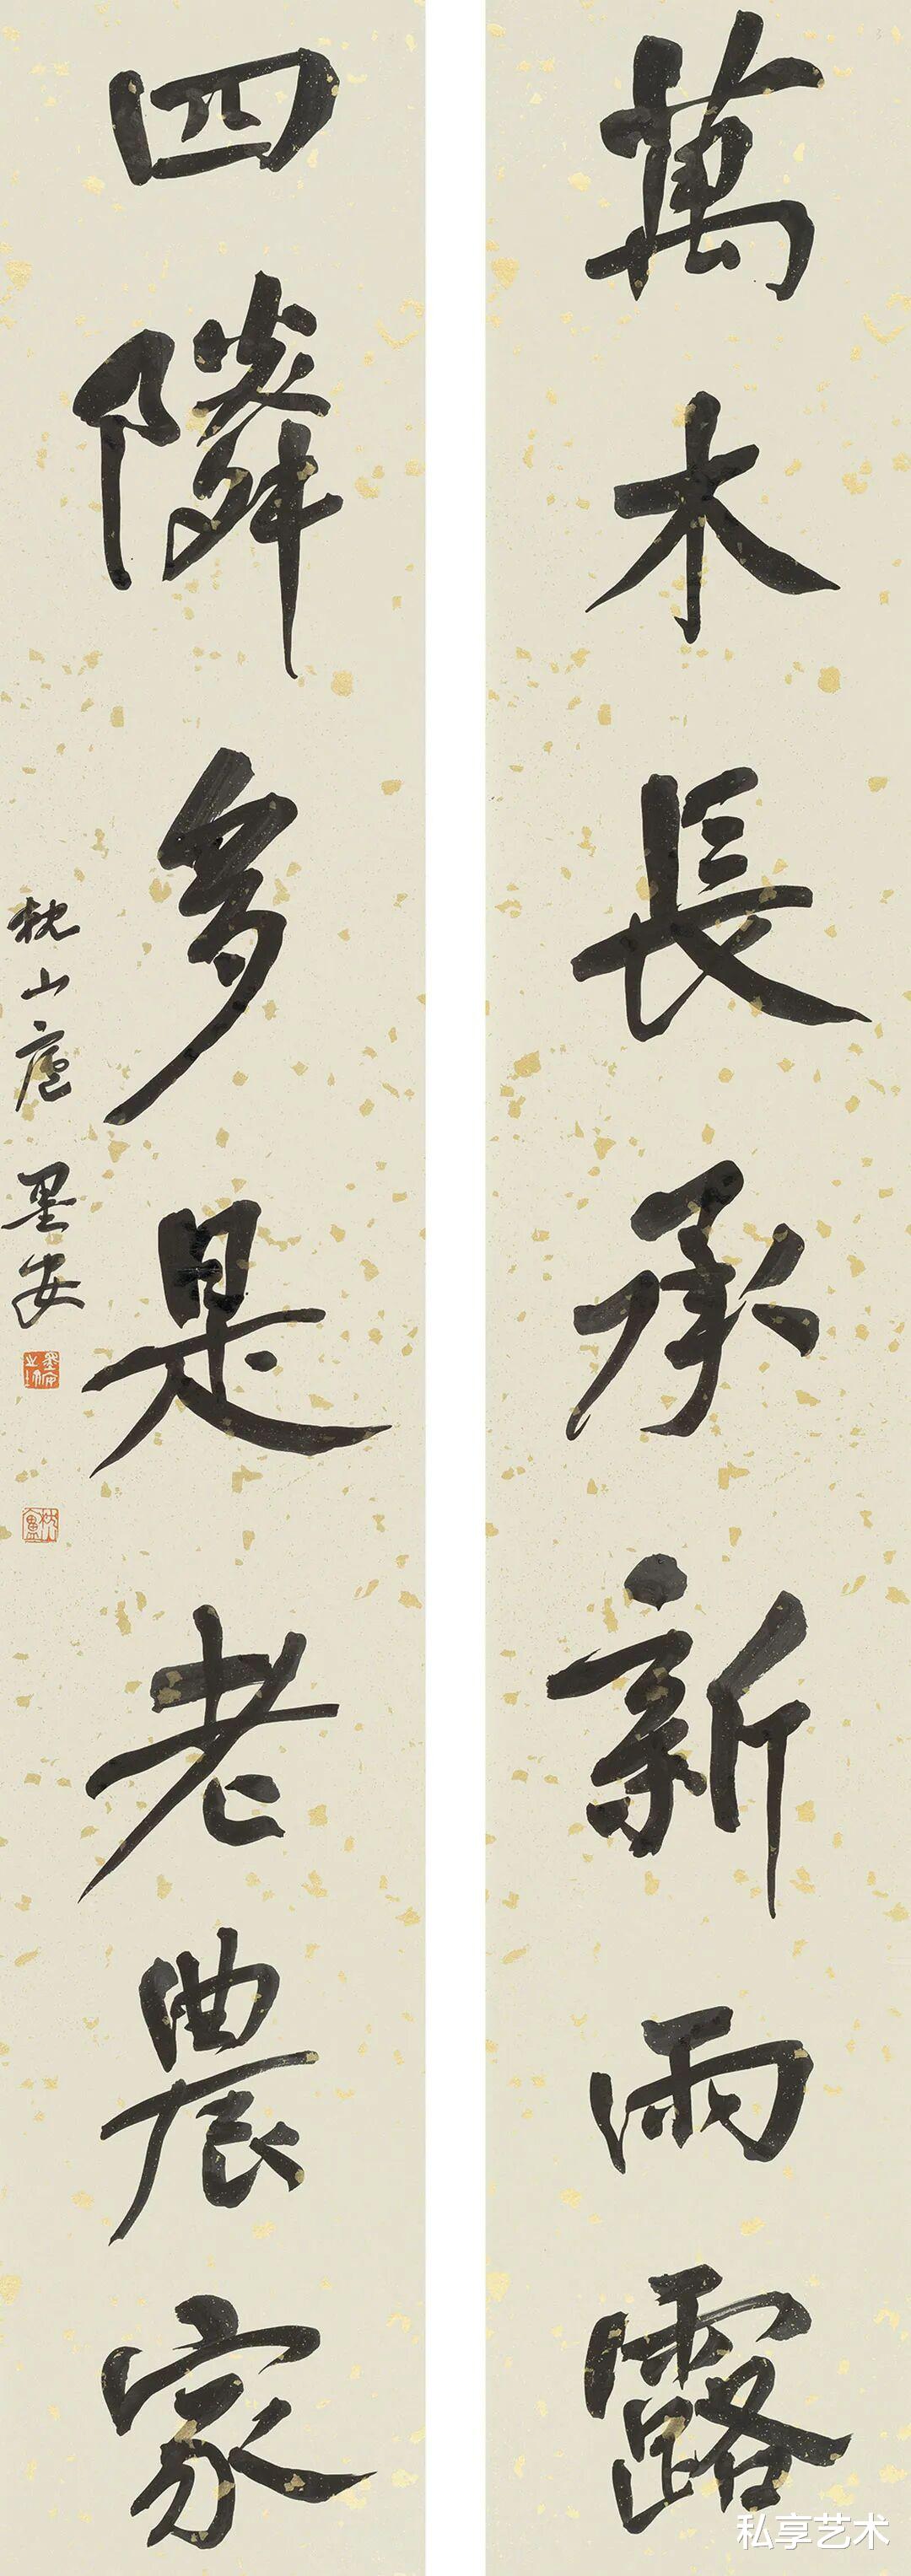 萬木長承新雨露
四隣多是老農家
枕山廬 墨安
私享艺术